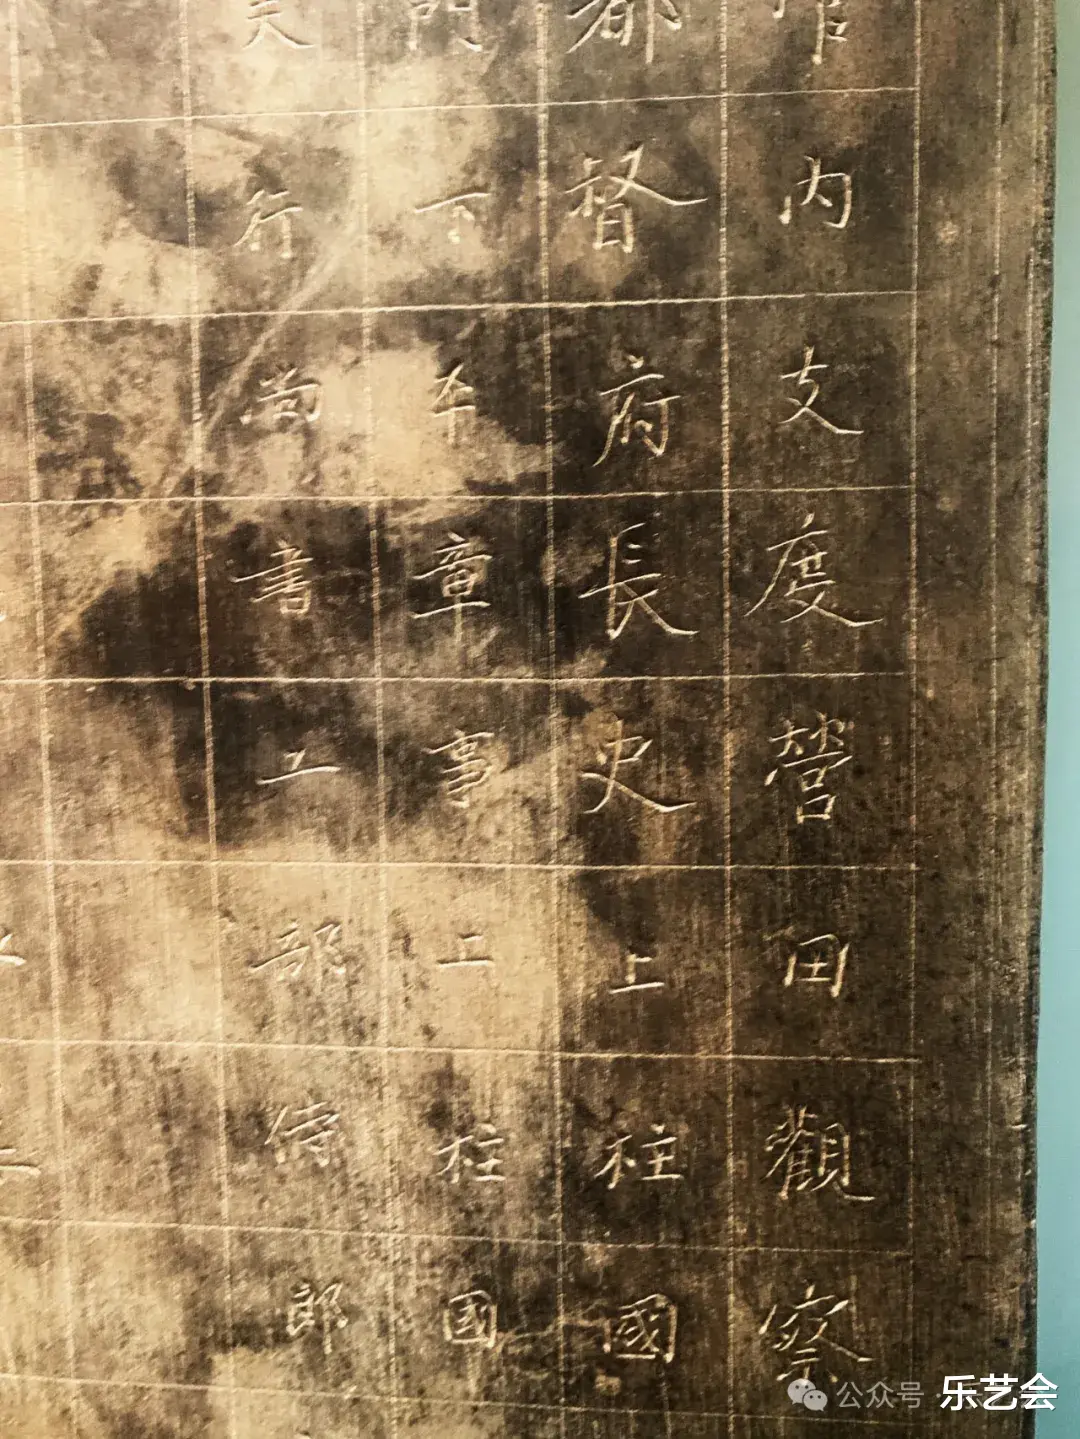 内支度營田觀察
都督府長史上柱國
門下平章事上柱國
行尚書工部侍郎
公众号·乐艺会